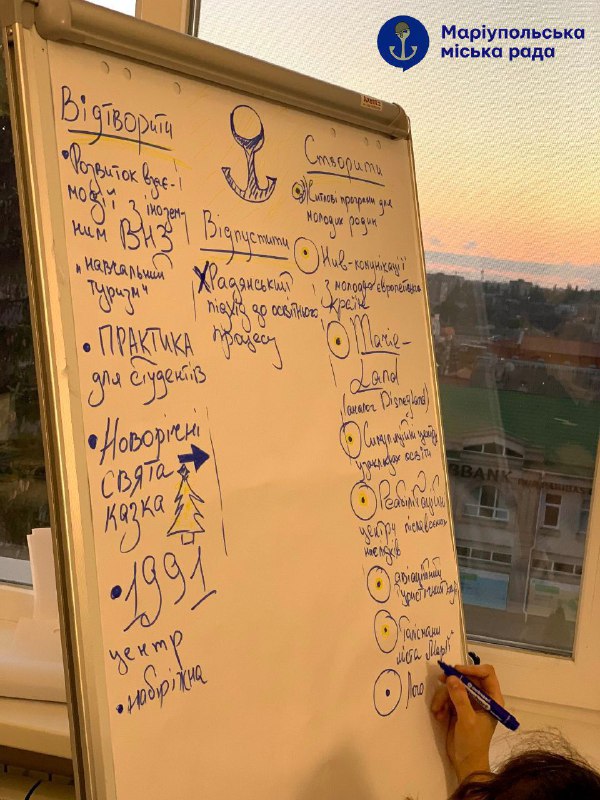 Маріупольська
міська рада
Відтворити
• Розвиток взає-
модії з інозем-
ним ВНЗ
"навчальний
туризм"
• ПРАКТИКА
для студентів
• Новорічні
свята
казка
• 1991
центр
• набіріжна
Відпустити
Х Радянський
підхід до освітнього
процесу
Створити
Житлові програми для
молодих родин
Нив-комунікації
з молоддю європейських
країн
Marie-
Land
(аналог Disneyland)
центри
закладах освіти
Реабілітаційні
центри післявоєнних
наслідків
туристичний
Талісмани
міста "Марії"
Лого
BANK